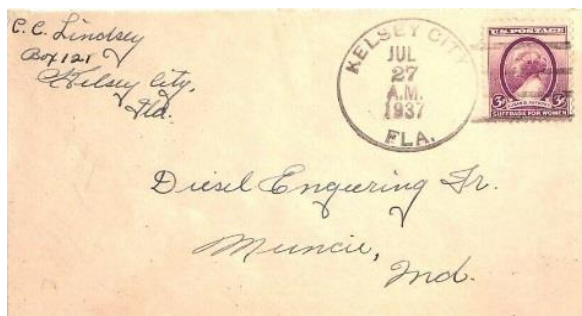 C. C. Lindsey
Box 121
Kelsey City,
Fla.
KELSEY CITY
JUL
27
A.M.
1937
FLA.
U.S. POSTAGE
3¢ 3¢
SUSAN B. ANTHONY
SUFFRAGE FOR WOMEN
Diesel Engeering Tr.
Muncie,
Ind.